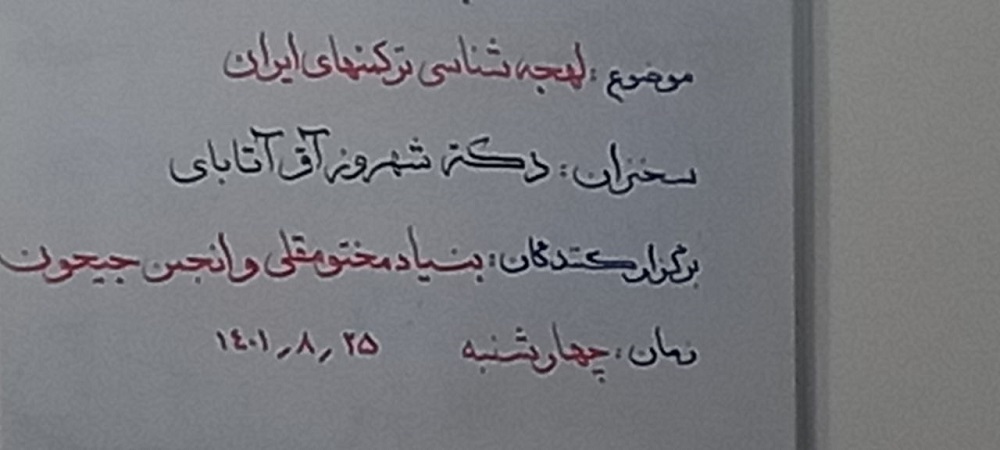 موضوع : لهجه شناسی ترکمنهای ایران
سخنران : دکتر شهروز آق آتابای
برگزار کنندگان : بنیاد مختومقلی و انجمن جیحون
زمان : چهارشنبه ۱۴۰۱/۸/۲۵